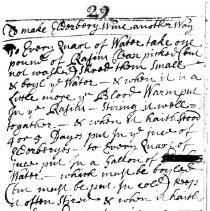 29
To make Elderbery Wine another Way
To Every Quart of Water take one
pound of Rasins clean picked but
not washed shred them Small
& boyl ye Water - & when it is a
Little more yn Blood Warm put
In ye Rasins - Stiring it well
together - & when it hath Stood
4 or 5 Dayes put In ye juce of
Elderberyes - to Every Quart of
juce put in a Gallon of
Water - which must be boyled
but must be put In cold keep
it often Stired & when it hath